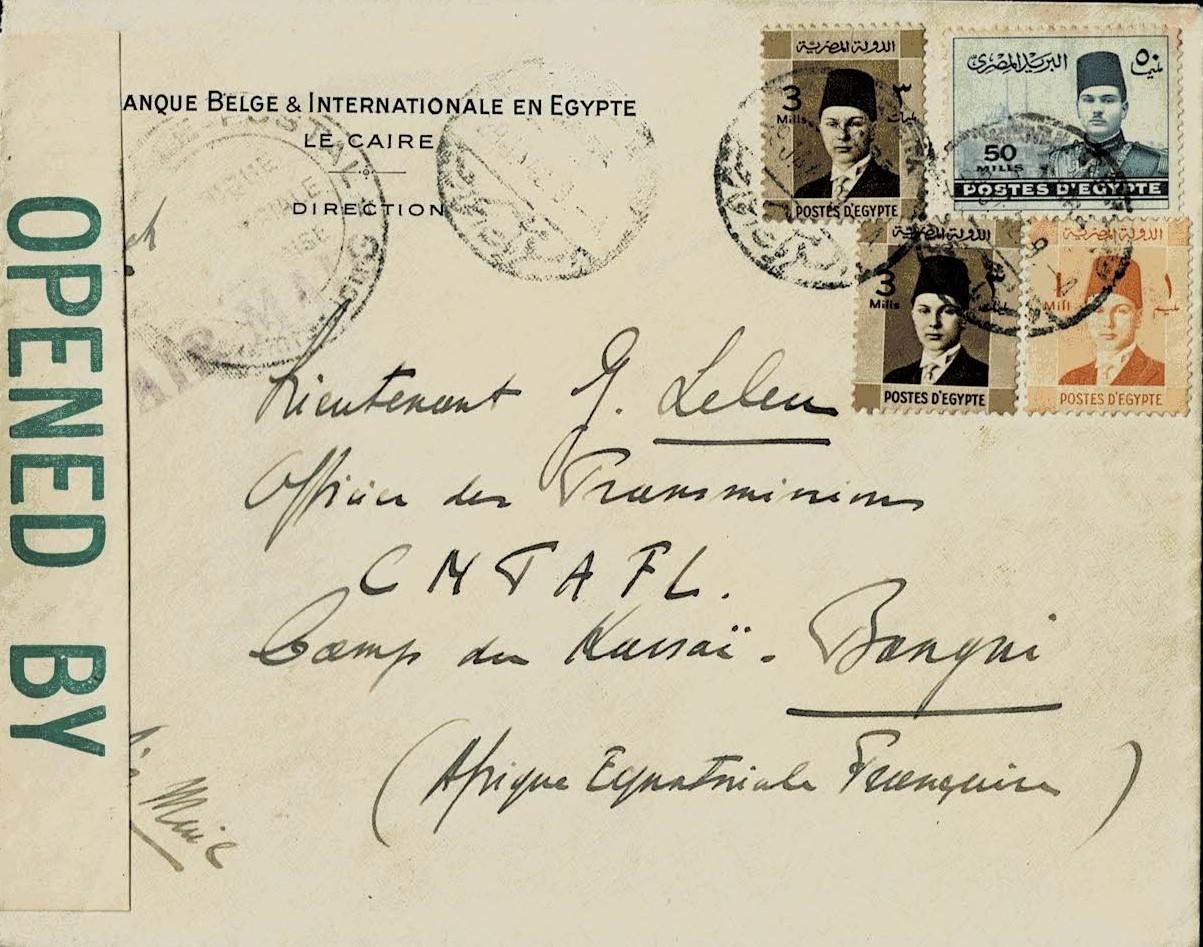 ANQUE BELGE & INTERNATIONALE EN EGYPTE
LE CAIRE
DIRECTION
OPENED BY
AIR MAIL
الدولة المصرية
3 ٣
Mills مليمات
POSTES D'EGYPTE
البريد المصرى
٥٠ مليم
50
MILLS
POSTES D'EGYPTE
الدولة المصرية
3
Mills
POSTES D'EGYPTE
الدولة المصرية
1 ١
Mill مليم
POSTES D'EGYPTE
Lieutenant G. Leleu
Officier des Transmissions
C M T A F L.
Camp du Kassaï. Bangui
(Afrique Equatoriale Française)